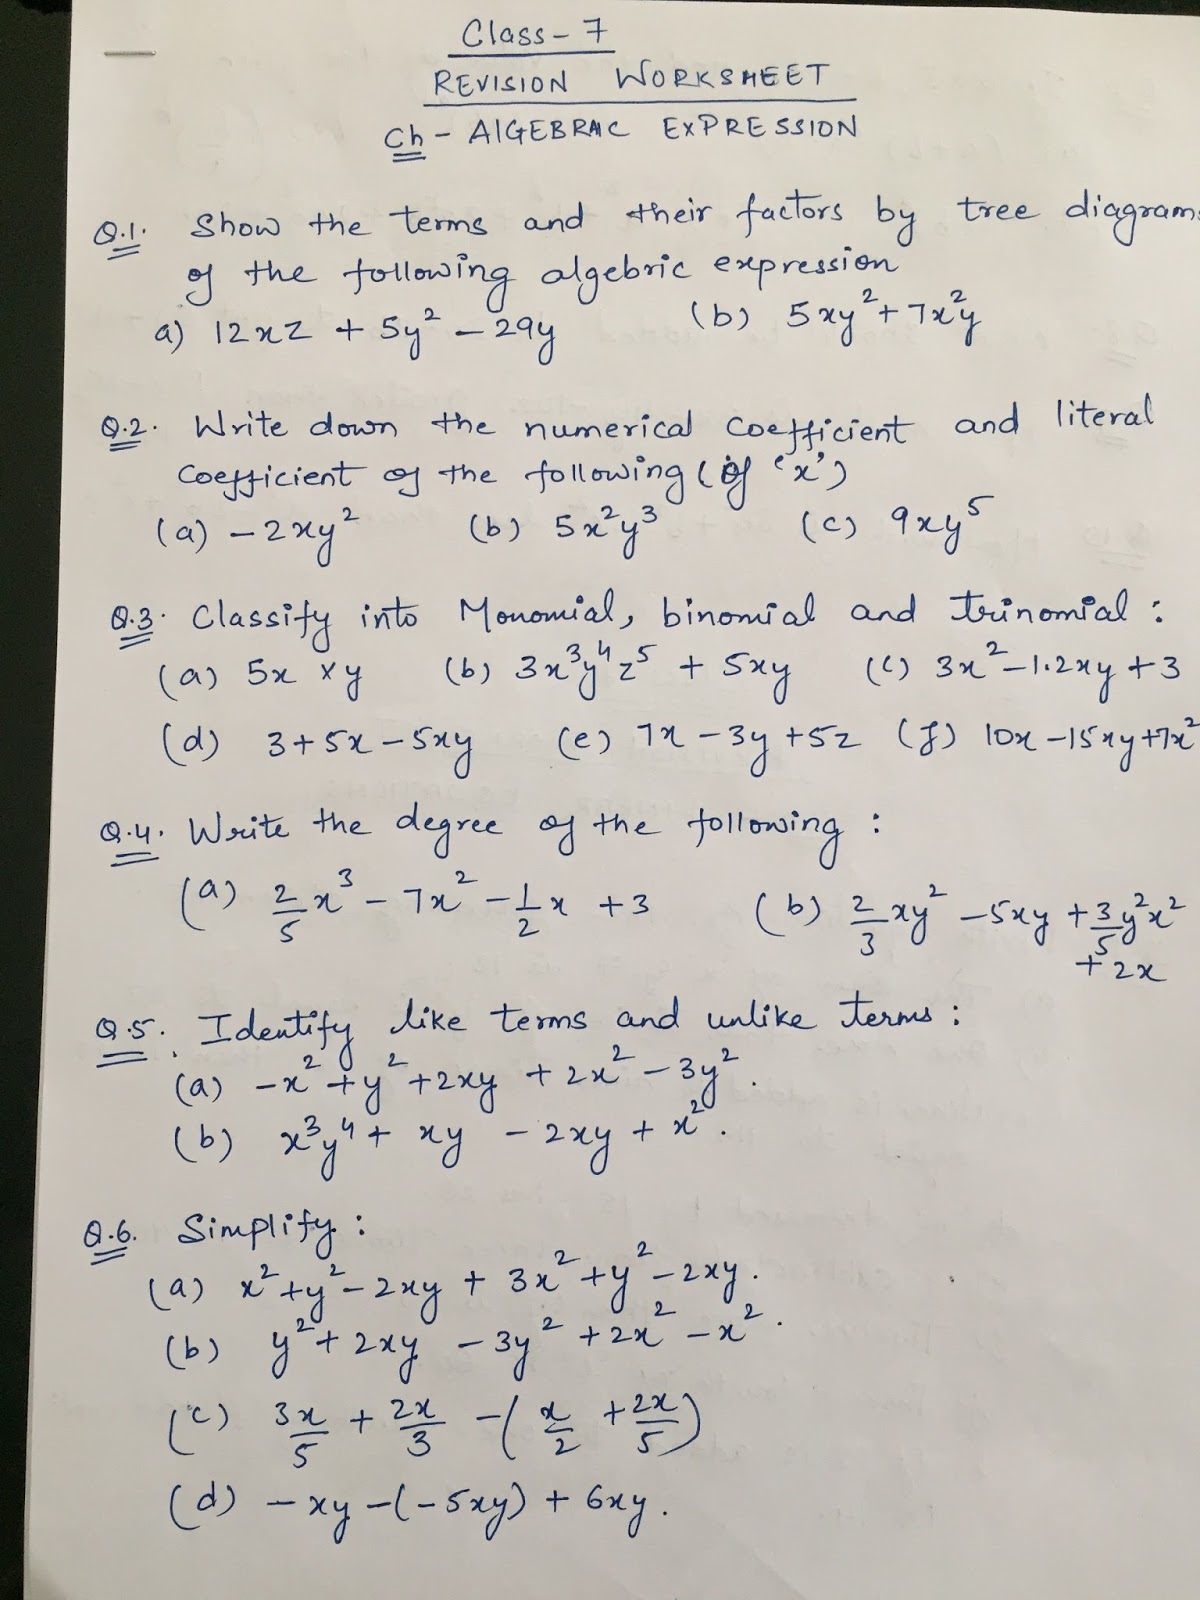 Class - 7
REVISION WORKSHEET
Ch - AlGEBRAIC EXPRESSION
Q.1. Show the terms and their factors by tree diagrams
of the following algebric expression
a) 12xz + 5y² - 29y (b) 5xy² + 7x²y
Q.2. Write down the numerical coefficient and literal
coefficient of the following (of 'x')
(a) -2xy² (b) 5x²y³ (c) 9xy⁵
Q.3. Classify into Monomial, binomial and trinomial :
(a) 5x × y (b) 3x³y⁴z⁵ + 5xy (c) 3x² - 1.2xy + 3
(d) 3 + 5x - 5xy (e) 7x - 3y + 5z (f) 10x - 15xy + 7x²
Q.4. Write the degree of the following :
(a) 2/5 x³ - 7x² - 1/2 x + 3 (b) 2/3 xy² - 5xy + 3/5 y²x²
+ 2x
Q.5. Identify like terms and unlike terms :
(a) -x² + y² + 2xy + 2x² - 3y².
(b) x³y⁴ + xy - 2xy + x².
Q.6. Simplify :
(a) x² + y² - 2xy + 3x² + y² - 2xy.
(b) y² + 2xy - 3y² + 2x² - x².
(c) 3x/5 + 2x/3 - (x/2 + 2x/5)
(d) - xy - (-5xy) + 6xy.